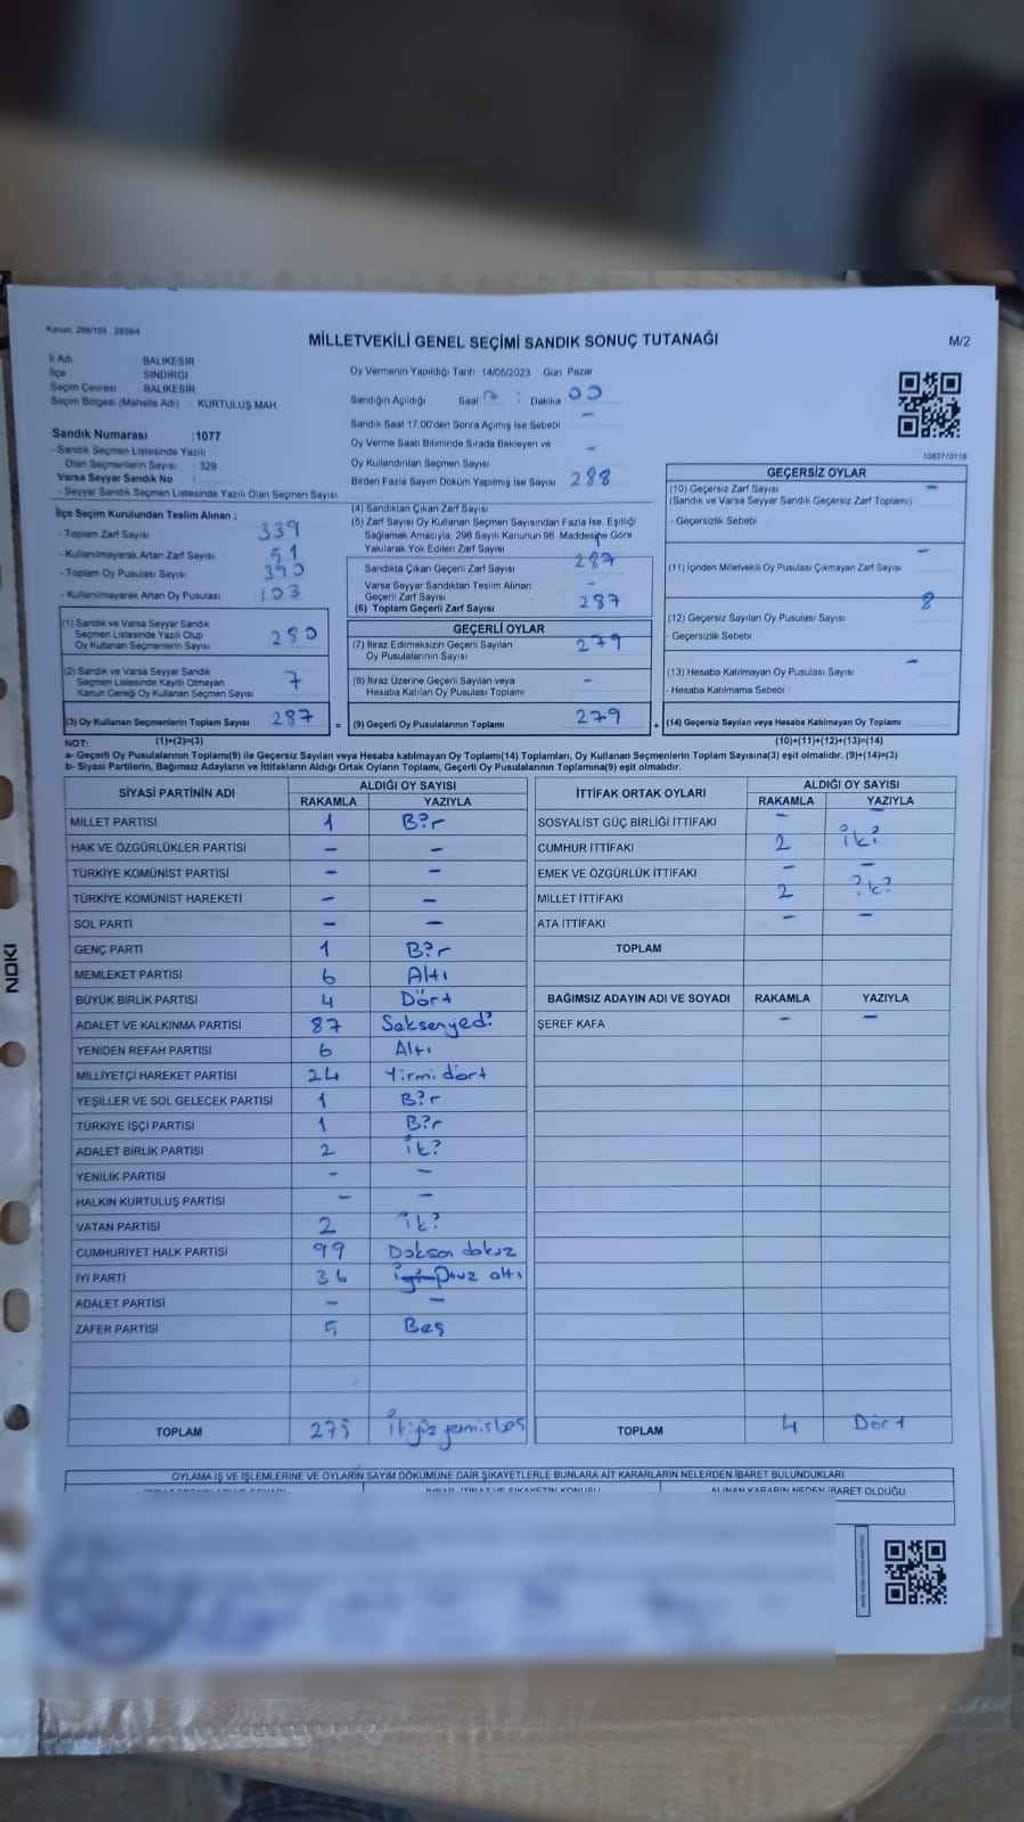 MİLLETVEKİLİ GENEL SEÇİMİ SANDIK SONUÇ TUTANAĞI
M/2
İl Adı BALIKESİR
İlçe SINDIRGI
Seçim Çevresi BALIKESİR
Seçim Bölgesi (Mahalle Adı) KURTULUŞ MAH.
Sandık Numarası :1077
- Sandık Seçmen Listesinde Yazılı
Olan Seçmenlerin Sayısı : 329
Varsa Seyyar Sandık No
- Seyyar Sandık Seçmen Listesinde Yazılı Olan Seçmen Sayısı
Oy Vermenin Yapıldığı Tarih :14/05/2023 Gün Pazar
Sandığın Açıldığı Saat : Dakika 00
Sandık Saat 17.00'den Sonra Açılmış İse Sebebi -
Oy Verme Saati Bitiminde Sırada Bekleyen ve
Oy Kullandırılan Seçmen Sayısı -
Birden Fazla Sayım Döküm Yapılmış İse Sayısı
İlçe Seçim Kurulundan Teslim Alınan ;
- Toplam Zarf Sayısı 339
- Kullanılmayarak Artan Zarf Sayısı 51
- Toplam Oy Pusulası Sayısı
- Kullanılmayarak Artan Oy Pusulası 103
(1) Sandık ve Varsa Seyyar Sandık
Seçmen Listesinde Yazılı Olup
Oy Kullanan Seçmenlerin Sayısı 280
(2) Sandık ve Varsa Seyyar Sandık
Seçmen Listesinde Kayıtlı Olmayan
Kanun Gereği Oy Kullanan Seçmen Sayısı 7
(3) Oy Kullanan Seçmenlerin Toplam Sayısı 287
(4) Sandıktan Çıkan Zarf Sayısı 288
(5) Zarf Sayısı Oy Kullanan Seçmen Sayısından Fazla İse, Eşitliği
Sağlamak Amacıyla, 298 Sayılı Kanunun 98. Maddesine Göre
Yakılarak Yok Edilen Zarf Sayısı
Sandıkta Çıkan Geçerli Zarf Sayısı 287
Varsa Seyyar Sandıktan Teslim Alınan
Geçerli Zarf Sayısı -
(6) Toplam Geçerli Zarf Sayısı 287
GEÇERLİ OYLAR
(7) İtiraz Edilmeksizin Geçerli Sayılan
Oy Pusulalarının Sayısı 279
(8) İtiraz Üzerine Geçerli Sayılan veya
Hesaba Katılan Oy Pusulası Toplamı -
= (9) Geçerli Oy Pusulalarının Toplamı 279
GEÇERSİZ OYLAR
(10) Geçersiz Zarf Sayısı -
(Sandık ve Varsa Seyyar Sandık Geçersiz Zarf Toplamı)
- Geçersizlik Sebebi
(11) İçinden Milletvekili Oy Pusulası Çıkmayan Zarf Sayısı -
(12) Geçersiz Sayılan Oy Pusulası Sayısı 8
- Geçersizlik Sebebi
(13) Hesaba Katılmayan Oy Pusulası Sayısı -
- Hesaba Katılmama Sebebi
(14) Geçersiz Sayılan veya Hesaba Katılmayan Oy Toplamı
NOT: (1)+(2)=(3)
(10)+(11)+(12)+(13)=(14)
a- Geçerli Oy Pusulalarının Toplamı(9) ile Geçersiz Sayılan veya Hesaba katılmayan Oy Toplamı(14) Toplamları, Oy Kullanan Seçmenlerin Toplam Sayısına(3) eşit olmalıdır. (9)+(14)=(3)
b- Siyasi Partilerin, Bağımsız Adayların ve İttifakların Aldığı Ortak Oyların Toplamı, Geçerli Oy Pusulalarının Toplamına(9) eşit olmalıdır.
SİYASİ PARTİNİN ADI
ALDIĞI OY SAYISI
RAKAMLA YAZIYLA
MİLLET PARTİSİ 1 Bir
HAK VE ÖZGÜRLÜKLER PARTİSİ - -
TÜRKİYE KOMÜNİST PARTİSİ - -
TÜRKİYE KOMÜNİST HAREKETİ - -
SOL PARTİ - -
GENÇ PARTİ 1 Bir
MEMLEKET PARTİSİ 6 Altı
BÜYÜK BİRLİK PARTİSİ 4 Dört
ADALET VE KALKINMA PARTİSİ 87 Seksenyedi
YENİDEN REFAH PARTİSİ 6 Altı
MİLLİYETÇİ HAREKET PARTİSİ 24 Yirmi dört
YEŞİLLER VE SOL GELECEK PARTİSİ 1 Bir
TÜRKİYE İŞÇİ PARTİSİ 1 Bir
ADALET BİRLİK PARTİSİ 2 İki
YENİLİK PARTİSİ - -
HALKIN KURTULUŞ PARTİSİ - -
VATAN PARTİSİ 2 İki
CUMHURİYET HALK PARTİSİ 99 Doksan dokuz
İYİ PARTİ 36 altı
ADALET PARTİSİ - -
ZAFER PARTİSİ 5 Beş
TOPLAM 275
İTTİFAK ORTAK OYLARI
ALDIĞI OY SAYISI
RAKAMLA YAZIYLA
SOSYALİST GÜÇ BİRLİĞİ İTTİFAKI - -
CUMHUR İTTİFAKI 2 iki
EMEK VE ÖZGÜRLÜK İTTİFAKI - -
MİLLET İTTİFAKI 2 iki
ATA İTTİFAKI - -
TOPLAM
BAĞIMSIZ ADAYIN ADI VE SOYADI RAKAMLA YAZIYLA
ŞEREF KAFA - -
TOPLAM 4 Dört
OYLAMA İŞ VE İŞLEMLERİNE VE OYLARIN SAYIM DÖKÜMÜNE DAİR ŞİKAYETLERLE BUNLARA AİT KARARLARIN NELERDEN İBARET BULUNDUKLARI
ALINAN KARARIN NEDEN İBARET OLDUĞU
NOKI